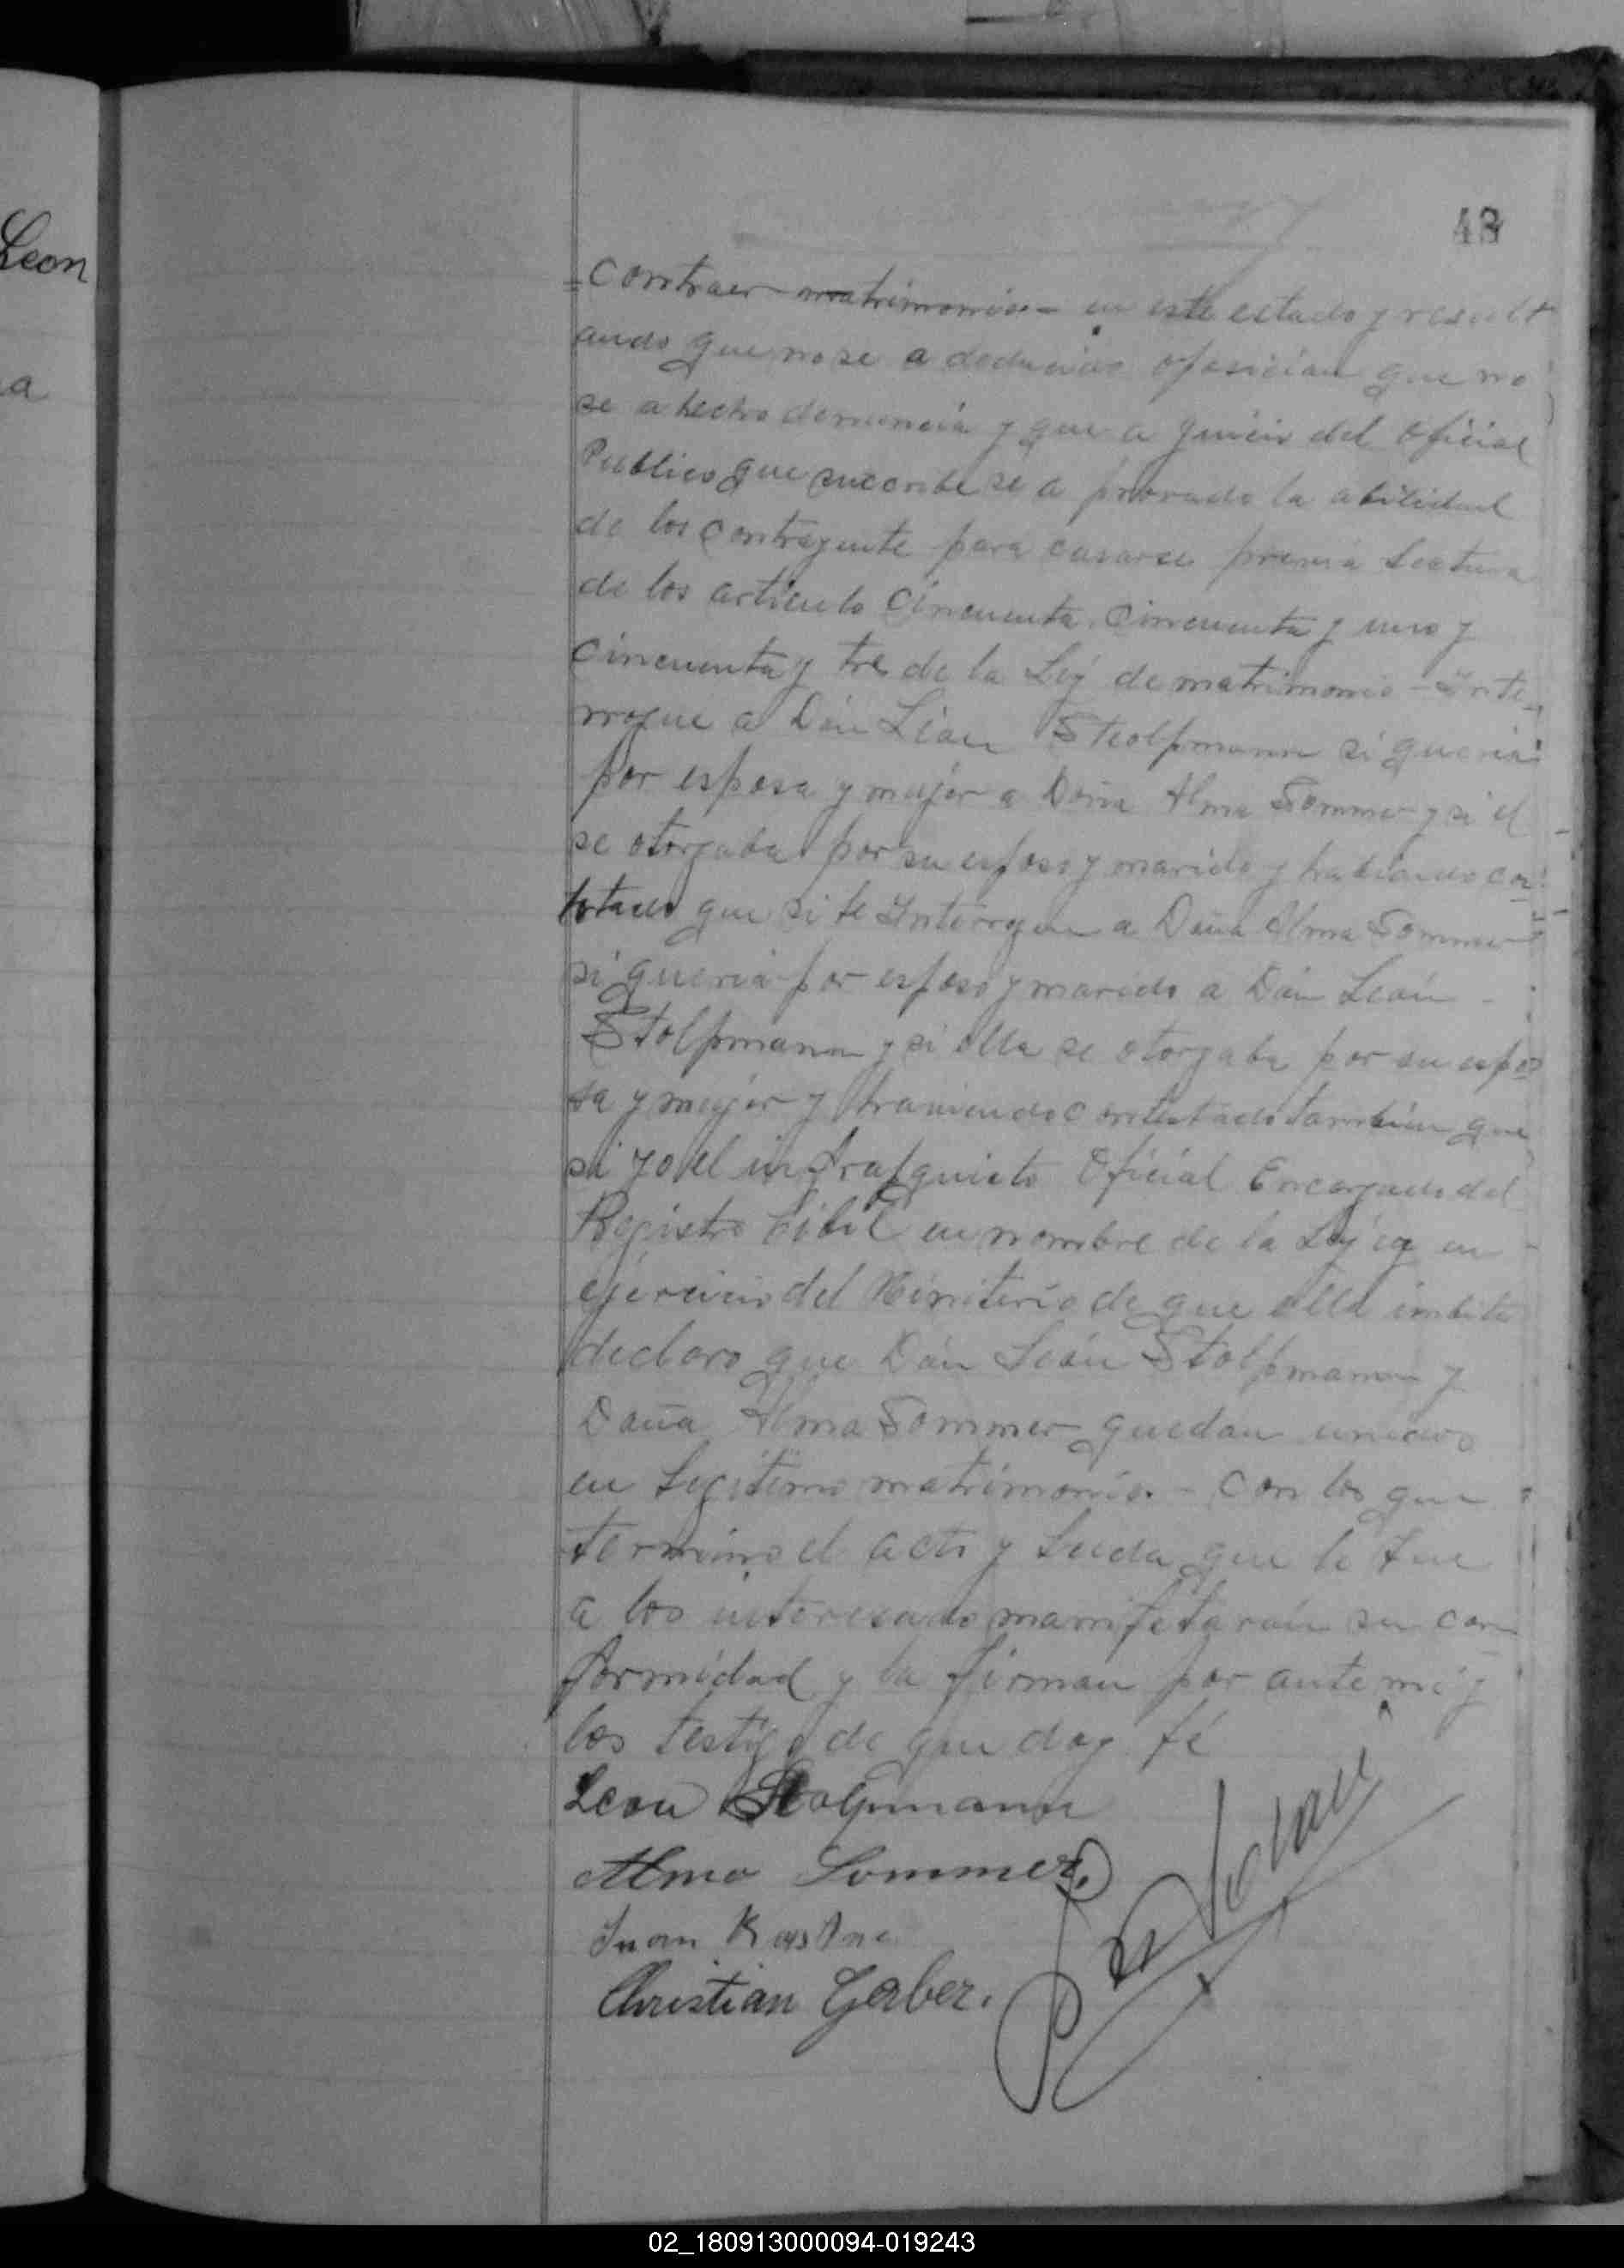 Leon
a
48
=Contraer matrimonio - en este estado y result
ando que no se a deducido oposicion que no
se a hecho denuncia y que a juicio del oficial
Publico que suscribe se a provado la abilidad
de los contrayente para casarse previa Lectura
de los articulo Cincuenta, Cincuenta y uno y
Cincuenta y tre de la Ley de matrimonio - Inte
rrogue a Don León Stolpmann si queria
por esposa y mujer a Doña Alma Sommer y si el
se otorgaba por su esposo y marido y habiendo con
testado que si le Interrogue a Doña Alma Sommer
si queria por esposo y marido a Don León -
Stolpmann y si ella se otorgaba por su espo
sa y mujer y habiendo contestado tambien que
si yo el Oficial Encargado del
Registro Cibil en nombre de la Ley y en
ejercicio del Miniterio de que ella imbite
declaro que Don León Stolpmann y
Doña Alma Sommer quedan unidos
en Legitimo matrimonio. - Con los que
termino el acto y Leida que le fue
a los interesado manifetarón su con
formidad y la firman por ante mi y
los testigo de que doy fé
Leon Stolpmann
Alma Sommer.
Juan
Christian Gerber.
02_180913000094-019243